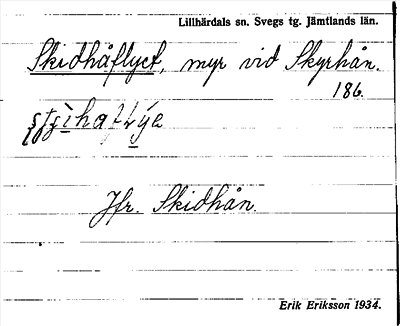 Lillhärdals sn. Svegs tg. Jämtlands län.
Skidhåflyet, myr vid Skyrhån.
186.
Jfr. Skidhån.
Erik Eriksson 1934.